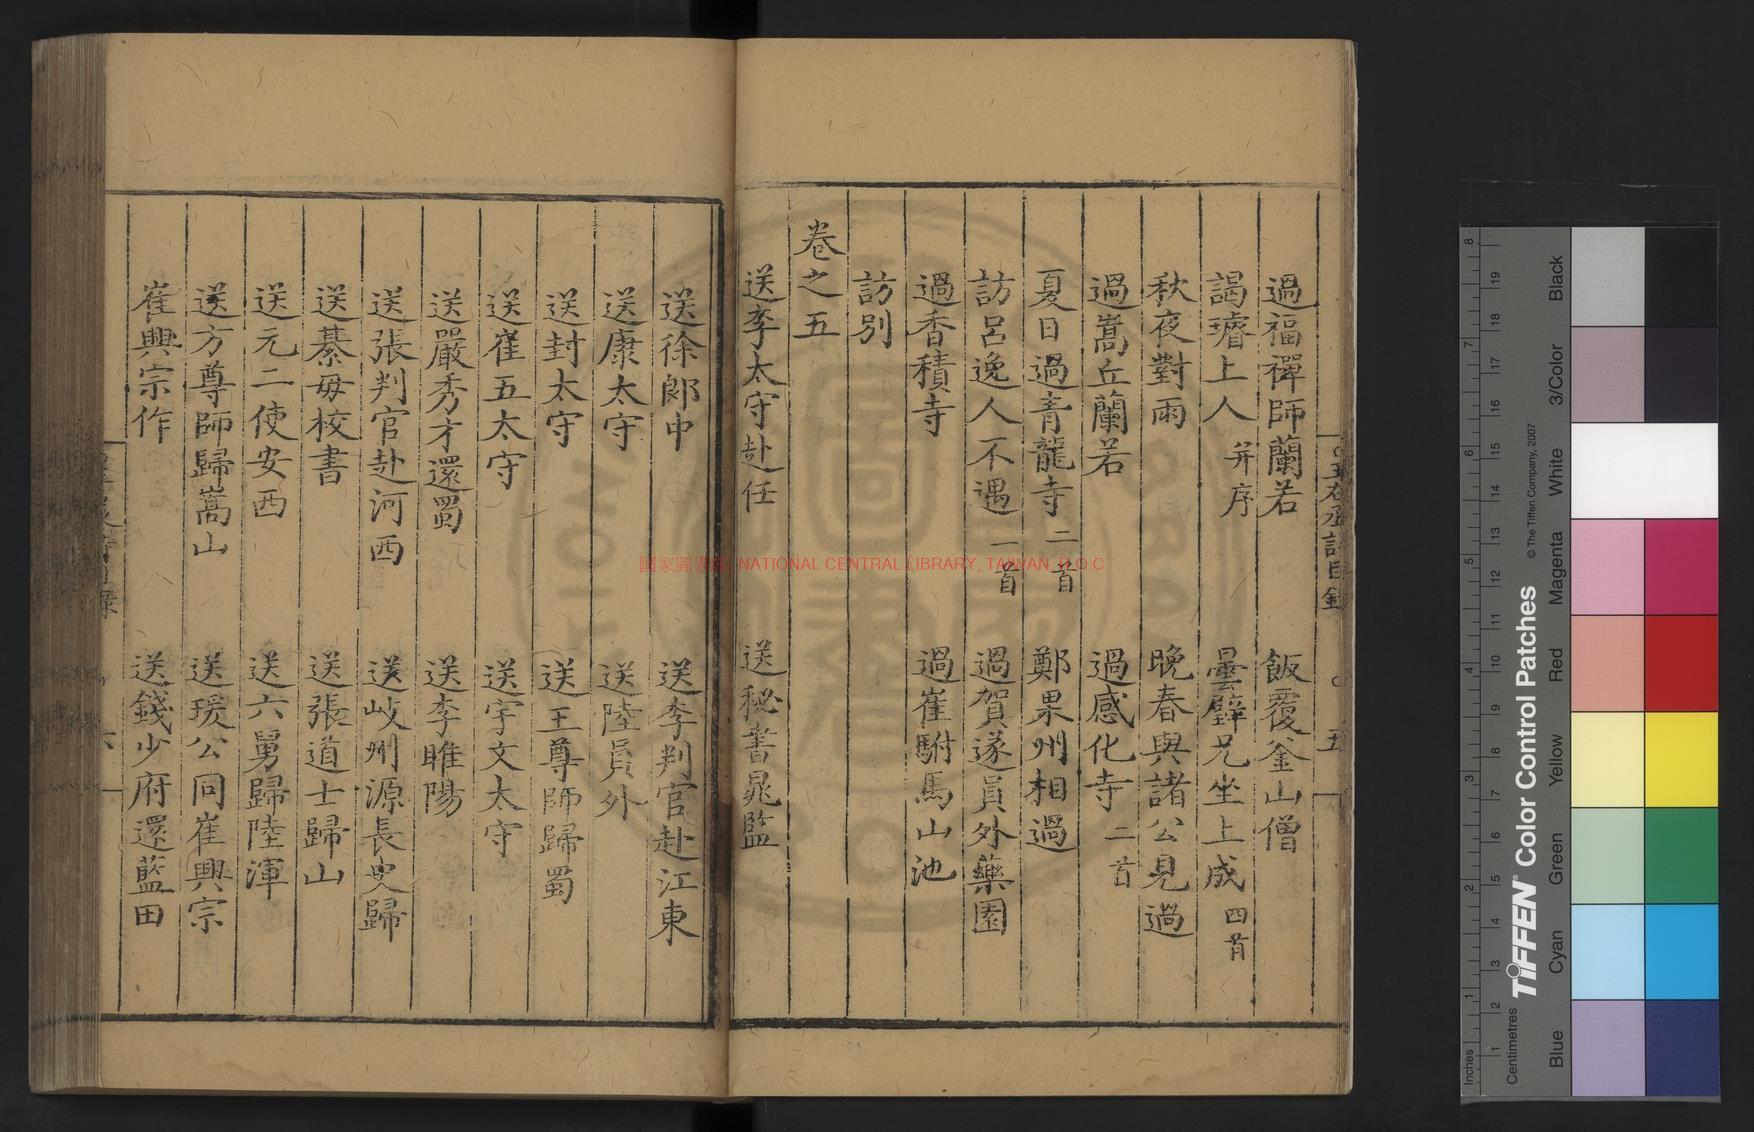 過福禪師蘭若 飯覆釜山僧
謁璿上人 并序 曇壁兄坐上成 四首
秋夜對雨 晚春與諸公見過
過嵩丘蘭若 過感化寺 二首
夏日過青龍寺 二首 鄭果州相過
訪呂逸人不遇 一首 過賀遂員外藥園
過香積寺 過崔駙馬山池
訪別
卷之五
送李太守赴任 送秘書晁監
送徐郎中 送李判官赴江東
送康太守 送陸員外
送封太守 送王尊師歸蜀
送崔五太守 送宇文太守
送嚴秀才還蜀 送李睢陽
送張判官赴河西 送岐州源長史歸
送綦毋校書 送張道士歸山
送元二使安西 送六舅歸陸渾
送方尊師歸嵩山 送瑗公同崔興宗
崔興宗作 送錢少府還藍田
國家圖書館, NATIONAL CENTRAL LIBRARY, TAIWAN, R.O.C
Inches
Centimetres
TIFFEN® Color Control Patches
© The Tiffen Company, 2007
Blue
Cyan
Green
Yellow
Red
Magenta
White
3/Color
Black